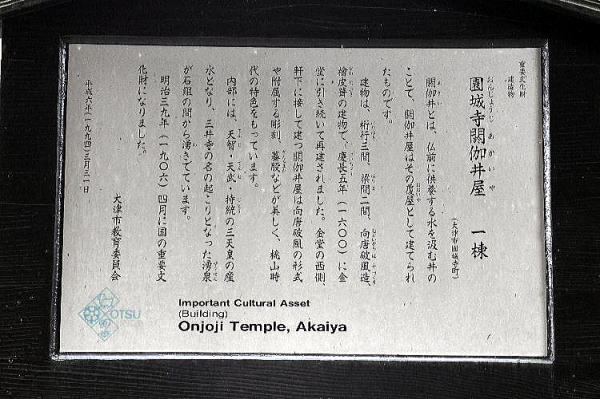 重要文化財
建造物
園城寺閼伽井屋 一棟
おんじょうじ あかいや
(大津市園城寺町)
閼伽井とは、仏前に供養する水を汲む井の
ことで、閼伽井屋はその覆屋として建てられ
たものです。
建物は、桁行三間、梁間二間、向唐破風造、
檜皮葺の建物で、慶長五年(一六〇〇)に金
堂に引き続いて再建されました。金堂の西側、
軒下に接して建つ閼伽井屋は向唐破風の形式
や附属する彫刻、蟇股などが美しく、桃山時
代の特色をもっています。
内部には、天智・天武・持統の三天皇の産
水となり、三井寺の名の起こりとなった湧泉
が石組の間から湧きでています。
明治三九年(一九〇六)四月に国の重要文
化財になりました。
平成六年(一九九四)三月三一日
大津市教育委員会
OTSU
Important Cultural Asset
(Building)
Onjoji Temple, Akaiya